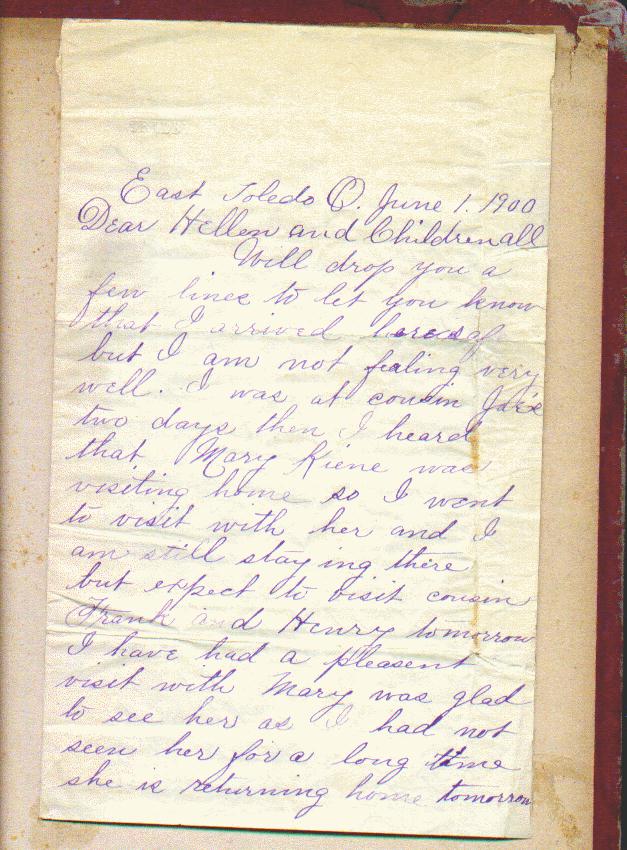 East Toledo O. June 1. 1900
Dear Hellen and Children all
Will drop you a
few lines to let you know
that I arrived here saf
but I am not fealing very
well. I was at cousin
two days then I heard
that Mary Kiene was
visiting home so I went
to visit with her and I
am still staying there
but expect to visit cousin
Frank and Henry tomorrow
I have had a pleasent
visit with Mary was glad
to see her as I had not
seen her for a long time
she is returning home tomorrow